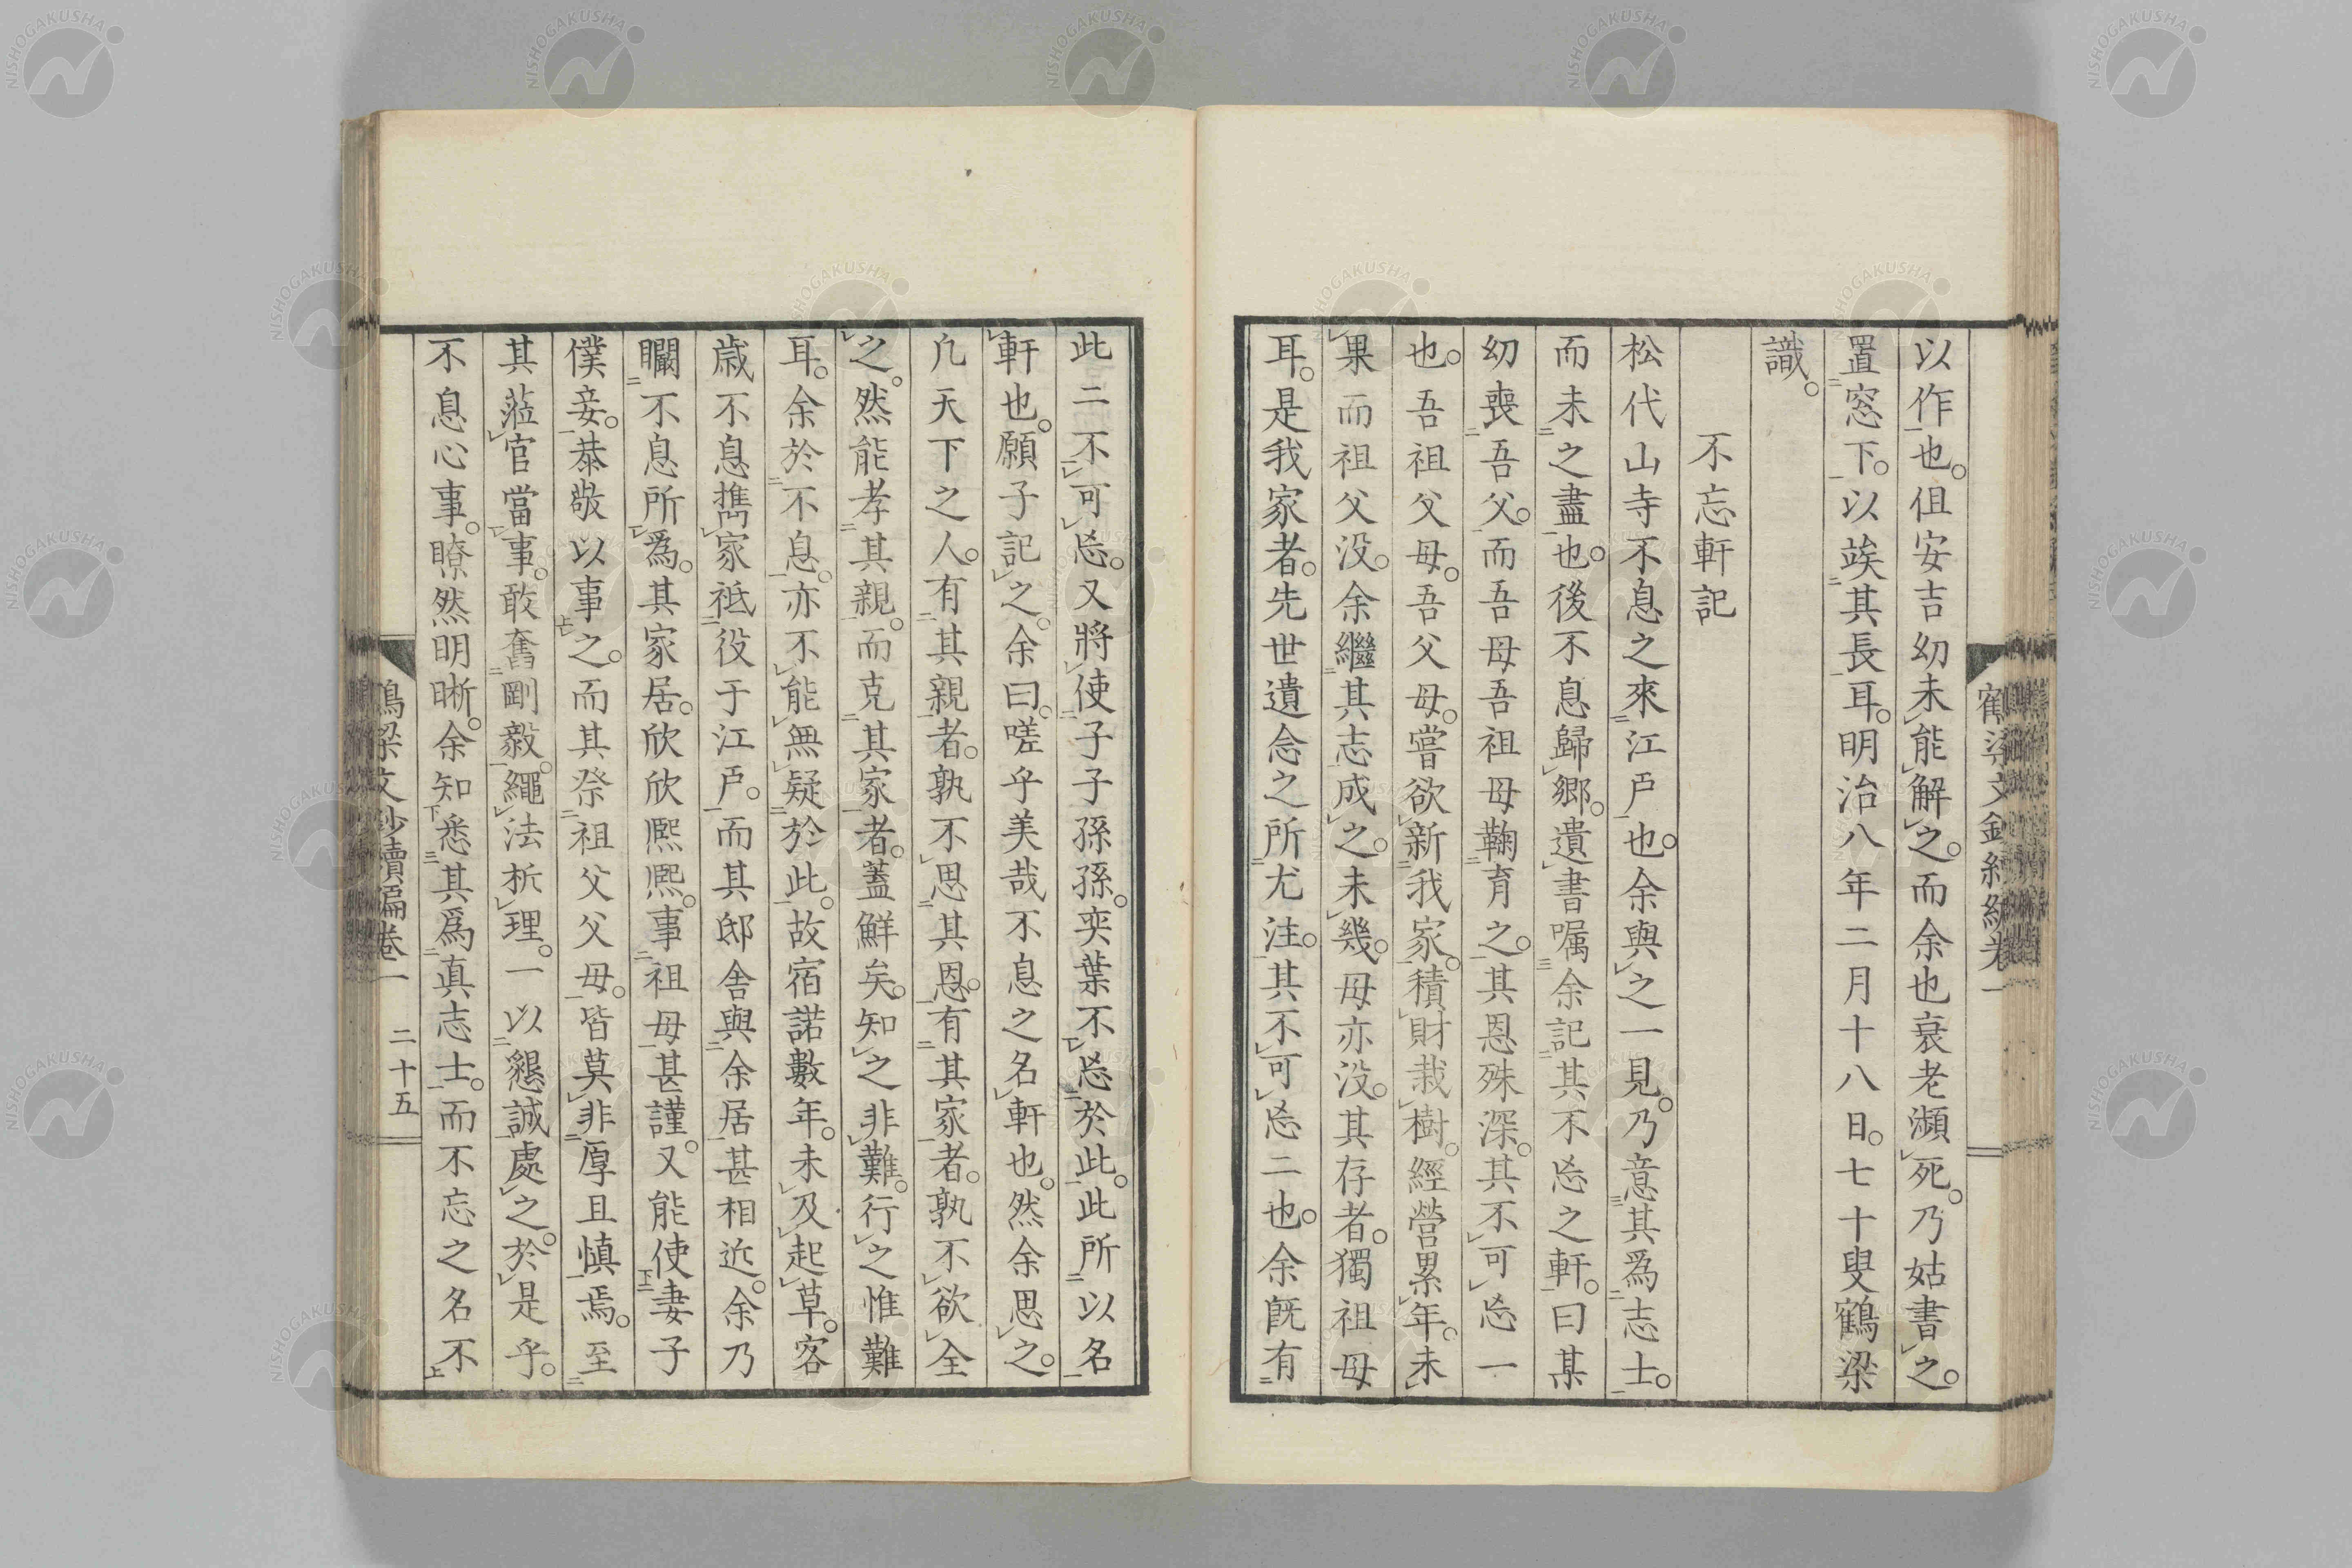 以作也。伹安吉幼未能解之。而余也衰老瀕死。乃姑書之。
置窓下。以竢其長耳。明治八年二月十八日。七十叟鶴梁
識。
不忘軒記
松代山寺不息之來江戸也。余與之一見。乃意其爲志士。
而未之盡也。後不息歸郷。遺書嘱余記其不忘之軒。曰某
幼喪吾父。而吾母吾祖母鞠育之。其恩殊深。其不可忘一
也。吾祖父母。吾父母。嘗欲新我家。積財栽樹。經營累年。未
果而祖父没。余繼其志成之。未幾。母亦没。其存者。獨祖母
耳。是我家者。先世遺念之所尤注。其不可忘二也。余既有
此二不可忘。又將使子子孫孫。奕葉不忘於此。此所以名
軒也。願子記之。余曰。嗟乎美哉不息之名軒也。然余思之。
凢天下之人。有其親者。孰不思其恩。有其家者。孰不欲全
之。然能孝其親。而克其家者。蓋鮮矣。知之非難。行之惟難
耳。余於不息。亦不能無疑於此。故宿諾數年。未及起草。客
歳不息携家祗役于江戸。而其邸舎與余居甚相近。余乃
瞷不息所爲。其家居。欣欣熈熈。事祖母甚謹。又能使妻子
僕妾。恭敬以事之。而其祭祖父父母。皆莫非厚且慎焉。至
其蒞官當事。敢奮剛毅。繩法析理。一以懇誠處之。於是乎。
不息心事。瞭然明晰。余知悉其爲真志士。而不忘之名不
鶴梁文鈔續編卷一 二十五